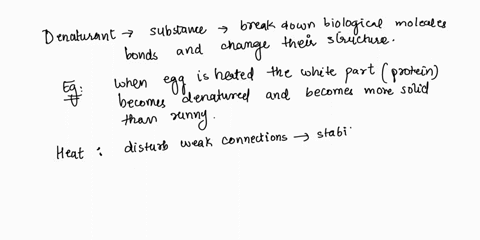 Denaturant → substance → break down biological molecules
bonds and change their structure.
Eg: when egg is heated the white part (protein)
becomes denatured and becomes more solid
than runny.
Heat : disturb weak connections → stabi